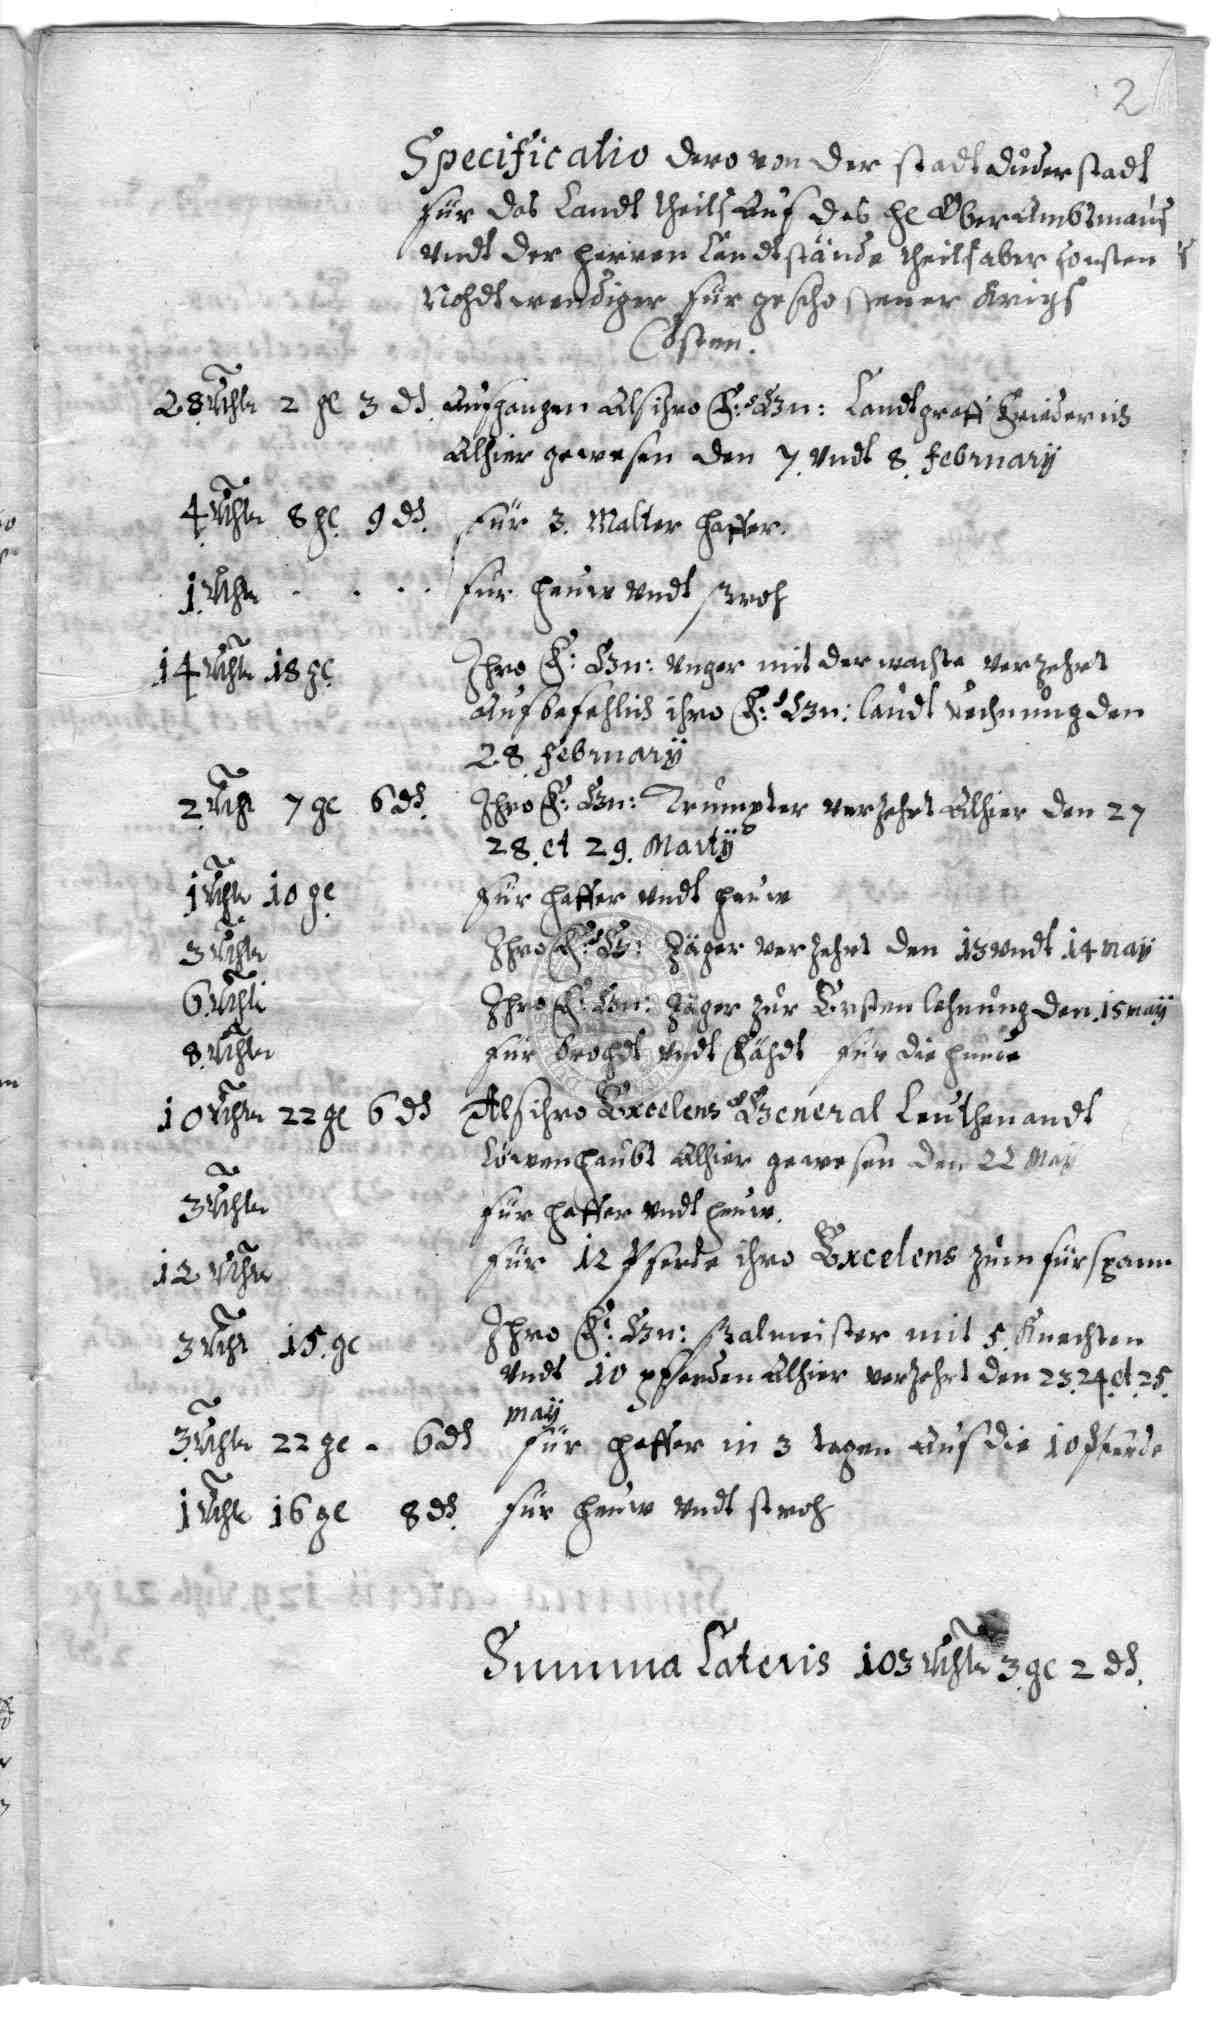 2
Specificatio dero von der stadt Duderstadt
für das Landt theils Auf des hl OberAmbtmans
Vndt der herren Landtstände theils aber sonsten
Nohdtwendiger für geschossener Krigs
Costen.
28 Rthlr 2 gl 3 d Aufgangen Als ihro F: Gn: Landtgraff Friederich
Alhier gewesen den 7. Vndt 8. february
4 Rthlr 8 gl. 9 d. für 3. Malter haffer.
1 Rthlr - . . . für heuw Vndt stroh
14 Rthlr 18 gl. Ihro F: Gn: Vnger mit der wachte verzehrt
Auf befehlich ihro F: Gn: landt rechnung den
28 february
2 Rthlr 7 gl 6 d. Ihro F: Gn: Trumpter verzehrt Alhier den 27
28. et 29. Martij
1 Rthlr 10 gl für haffer Vndt heuw
3 Rthlr Ihro F: G: Jäger verzehrt den 13 Vndt 14 maij
6 Rthlr Ihro F: Gn: Jäger zur Ersten lehnung den 15 maij
8 Rthlr für brohdt Vndt für die hunde
10 Rthlr 22 gl 6 d Als ihro Excelens General Leuthenandt
Löwenhaubt Alhier gewesen den 22 Maij
3 Rthlr für haffer Vndt heuw.
12 Rthlr für 12 Pferde ihro Excelens zum fürspann
3 Rthlr 15. gl Ihro F: Gn: stalmeister mit 5. Knechten
Vndt 10 pferden Alhier verzehrt den 23. 24. et. 25.
maij
3 Rthlr 22 gl - 6 d für haffer in 3 tagen Auf die 10 Pferde
1 Rthlr 16 gl 8 d. für heuw Vndt stroh
Summa Lateris 103 Rthlr 3 gl 2 d.